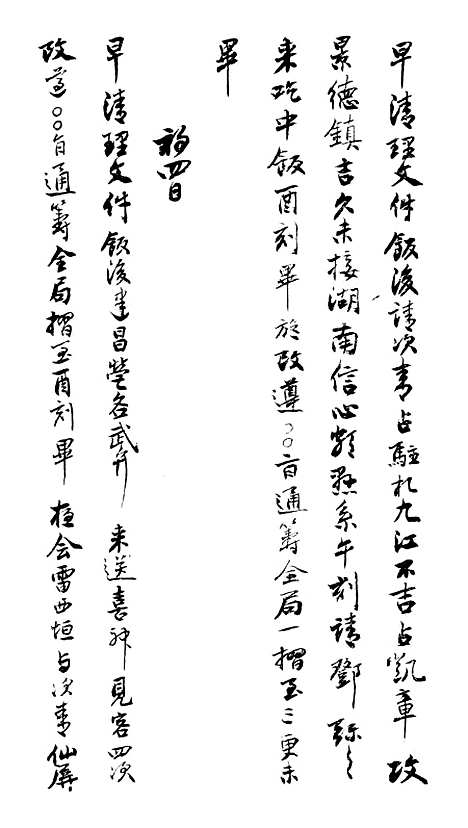 早清理文件飯後請次青占駐扎九江不吉占凱章攻
景德鎮吉久未接湖南信心頗懸系午刻請鄧弥之
来吃中飯酉刻畢於改遵〇〇旨通籌全局一摺至二更未
畢
初四日
早清理文件飯後建昌營各武弁来送喜神見客四次
改遵〇〇旨通籌全局摺至酉刻畢夜会雷西垣与次青仙屏